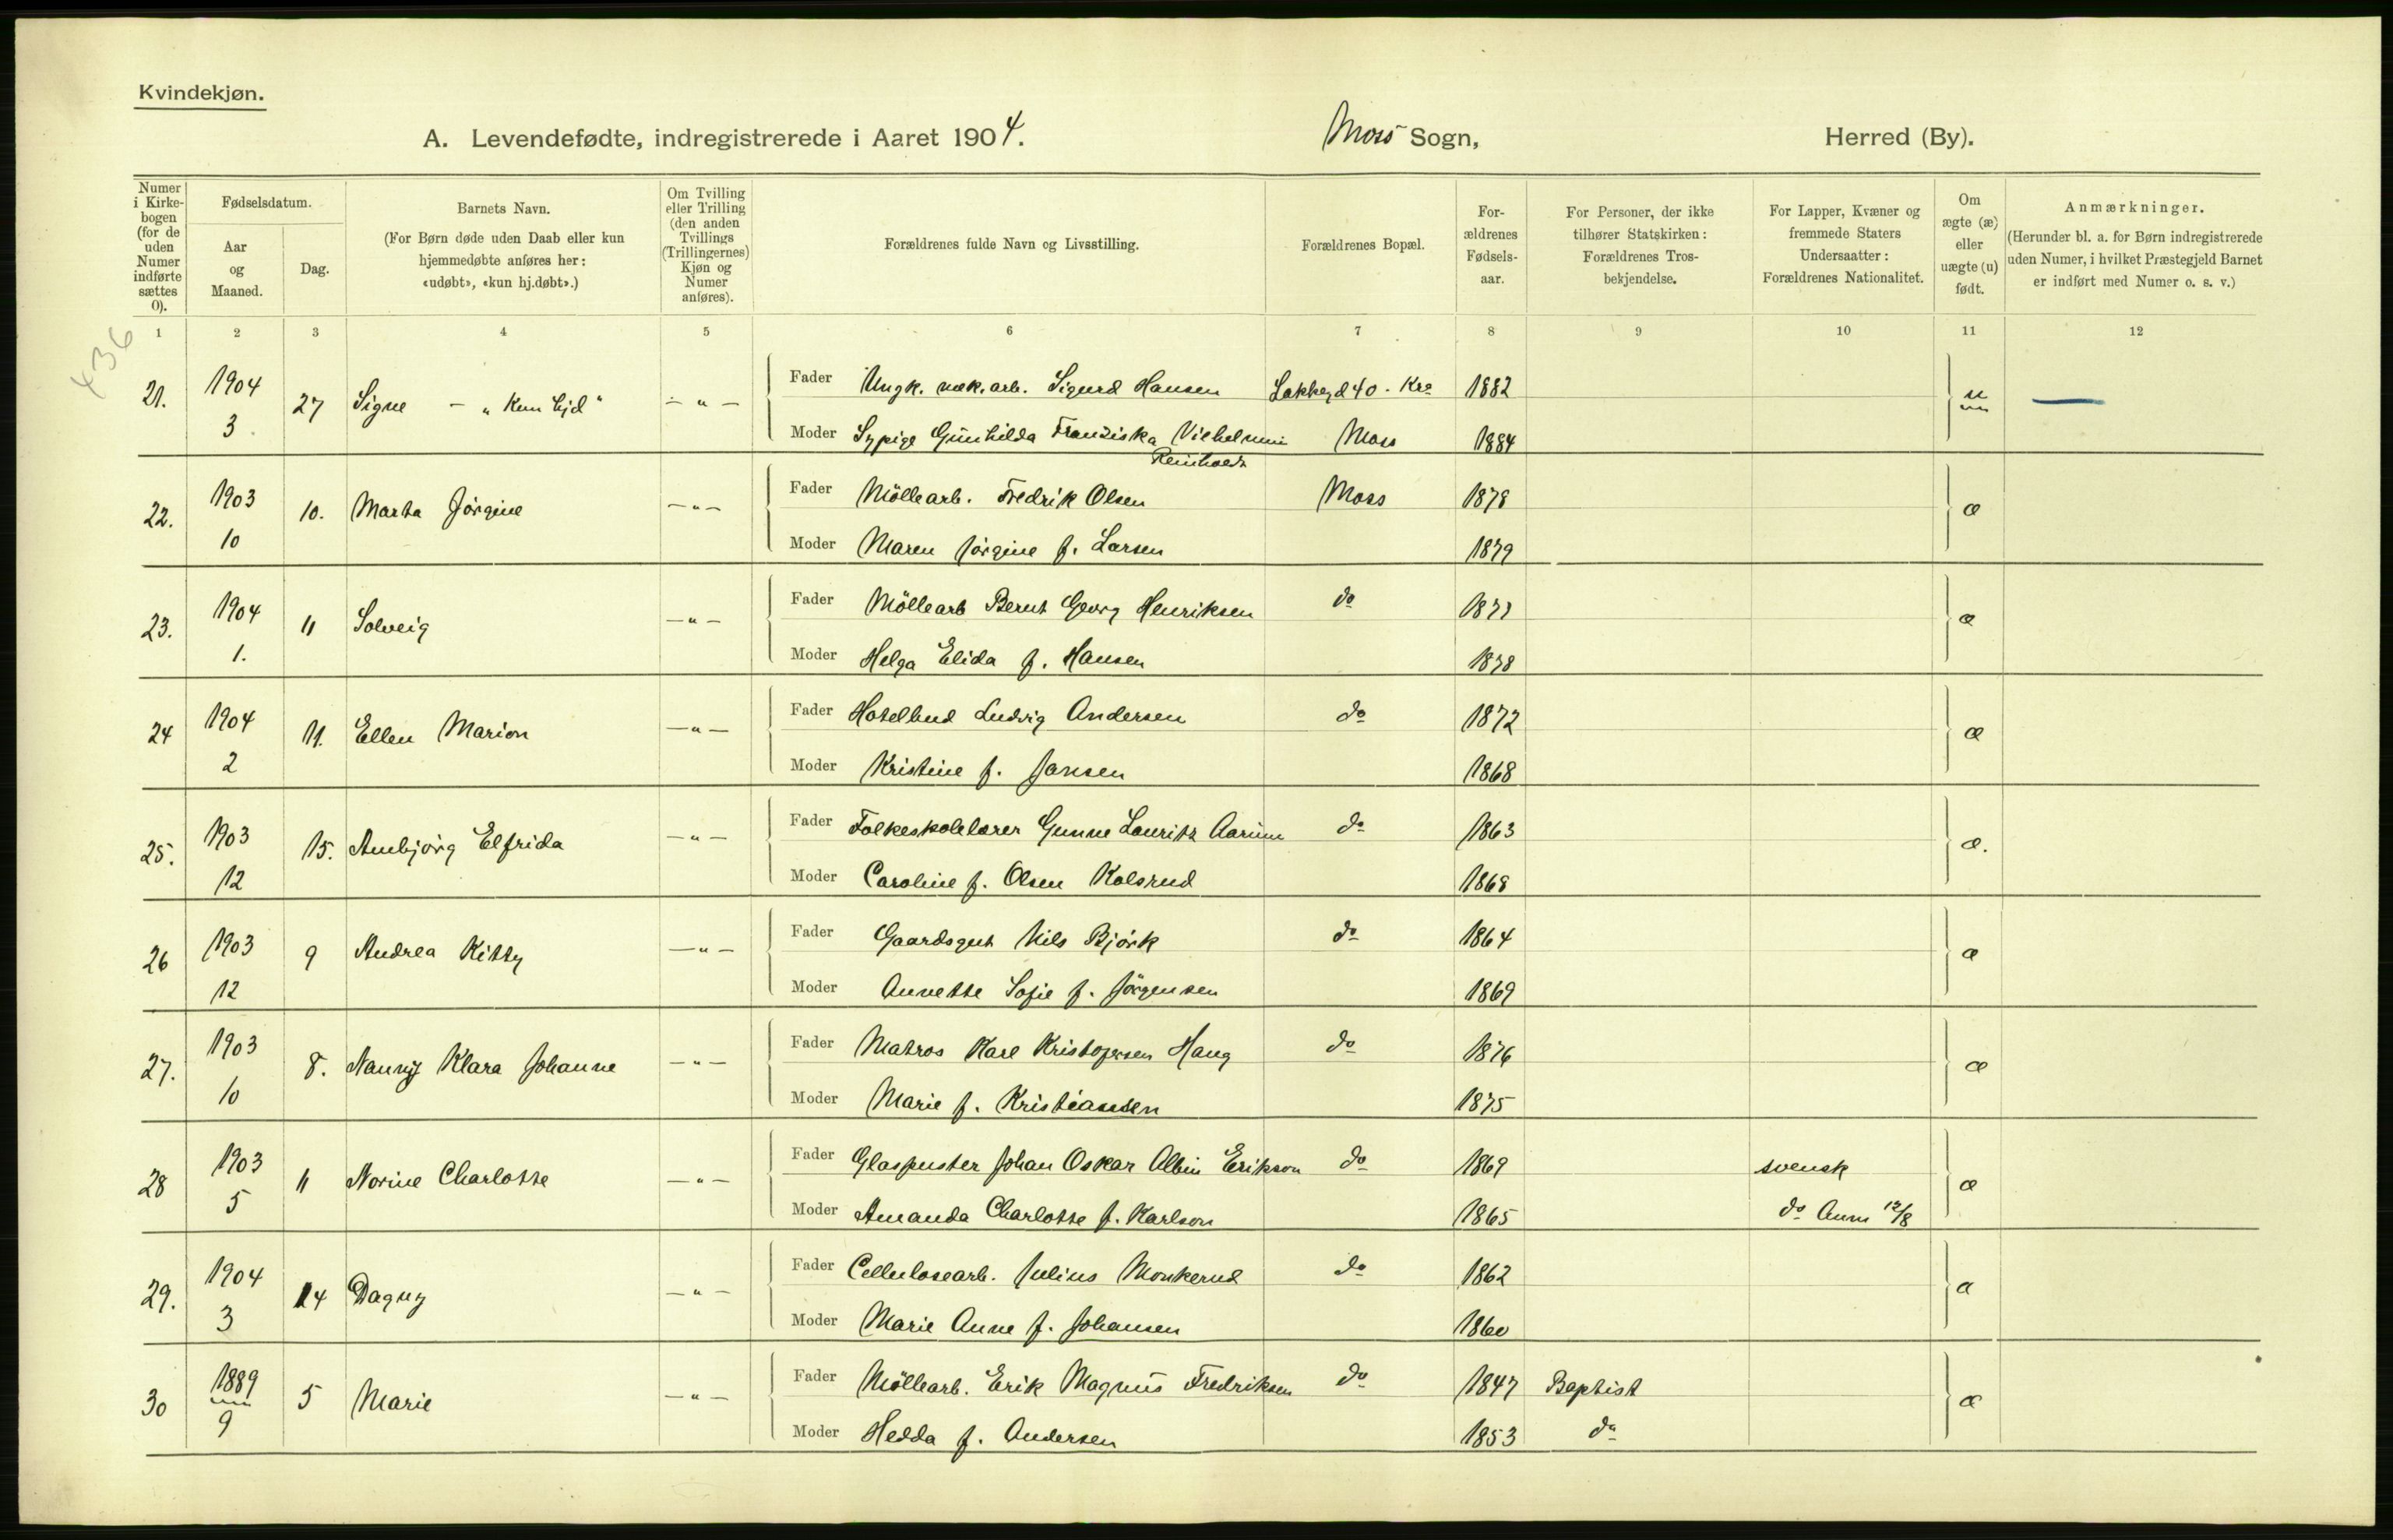 Kvindekjøn.
A. Levendefødte, indregistrerede i Aaret 1904. Moss Sogn, Herred (By).
Numer i Kirkebogen (for de uden Numer indførte sættes 0).
Fødselsdatum.
Aar og Maaned.
Dag.
Barnets Navn.
(For Børn døde uden Daab eller kun hjemmedøbte anføres her: «udøbt», «kun hj.døbt».)
Om Tvilling eller Trilling (den anden Tvillings (Trillingernes) Kjøn og Numer anføres).
Forældrenes fulde Navn og Livsstilling.
Forældrenes Bopæl.
Forældrenes Fødselsaar.
For Personer, der ikke tilhører Statskirken: Forældrenes Trosbekjendelse.
For Lapper, Kvæner og fremmede Staters Undersaatter: Forældrenes Nationalitet.
Om ægte (æ) eller uægte (u) født.
Anmærkninger.
(Herunder bl. a. for Børn indregistrerede uden Numer, i hvilket Præstegjeld Barnet er indført med Numer o. s. v.)
1 2 3 4 5 6 7 8 9 10 11 12
436
21. 1904 3. 27 Signe - "Kun hjd" - " - Fader Ungk. mek. arb. Sigurd Hansen Lakkegd 40. Kra 1882 u
Moder Sypige Gunhilda Franziska Vilhelmine Reinholdt Moss 1884
22. 1903 10 10. Marta Jørgine - " - Fader Möllearb. Fredrik Olsen Moss 1878 æ
Moder Maren Jørgine f. Larsen 1879
23. 1904 1. 11 Solveig - " - Fader Möllearb Bernt Georg Henriksen do 1877 æ
Moder Helga Elida f. Hansen 1878
24 1904 2 11. Ellen Marion - " - Fader Hotelbud Ludvig Andersen do 1872 æ
Moder Kristine f. Jansen 1868
25. 1903 12 15. Anbjørg Elfrida - " - Fader Folkeskolelærer Gunne Lauritz Aarum do 1863 æ.
Moder Caroline f. Olsen Kolsrud 1868
26 1903 12 9 Andrea Kitty - " - Fader Gaardsgut Nils Björk do 1864 æ
Moder Annette Sofie f. Jörgensen 1869
27. 1903 10 8. Nanny Klara Johanne - " - Fader Matros Karl Kristofersen Haug do 1876 æ
Moder Marie f. Kristiansen 1875
28 1903 5 11 Norine Charlotte - " - Fader Glaspuster Johan Oskar Albin Erikson do 1869 svensk æ
Moder Amanda Charlotte f. Karlson 1865 do Anm 12/8
29. 1904 3 14 Dagny - " - Fader Cellulosearb. Julius Monkerud do 1862 æ
Moder Marie Anne f. Johansen 1860
30 1889 9 5 Marie - " - Fader Möllearb. Erik Magnus Fredriksen do 1847 Baptist æ
Moder Hedda f. Andersen 1853 do